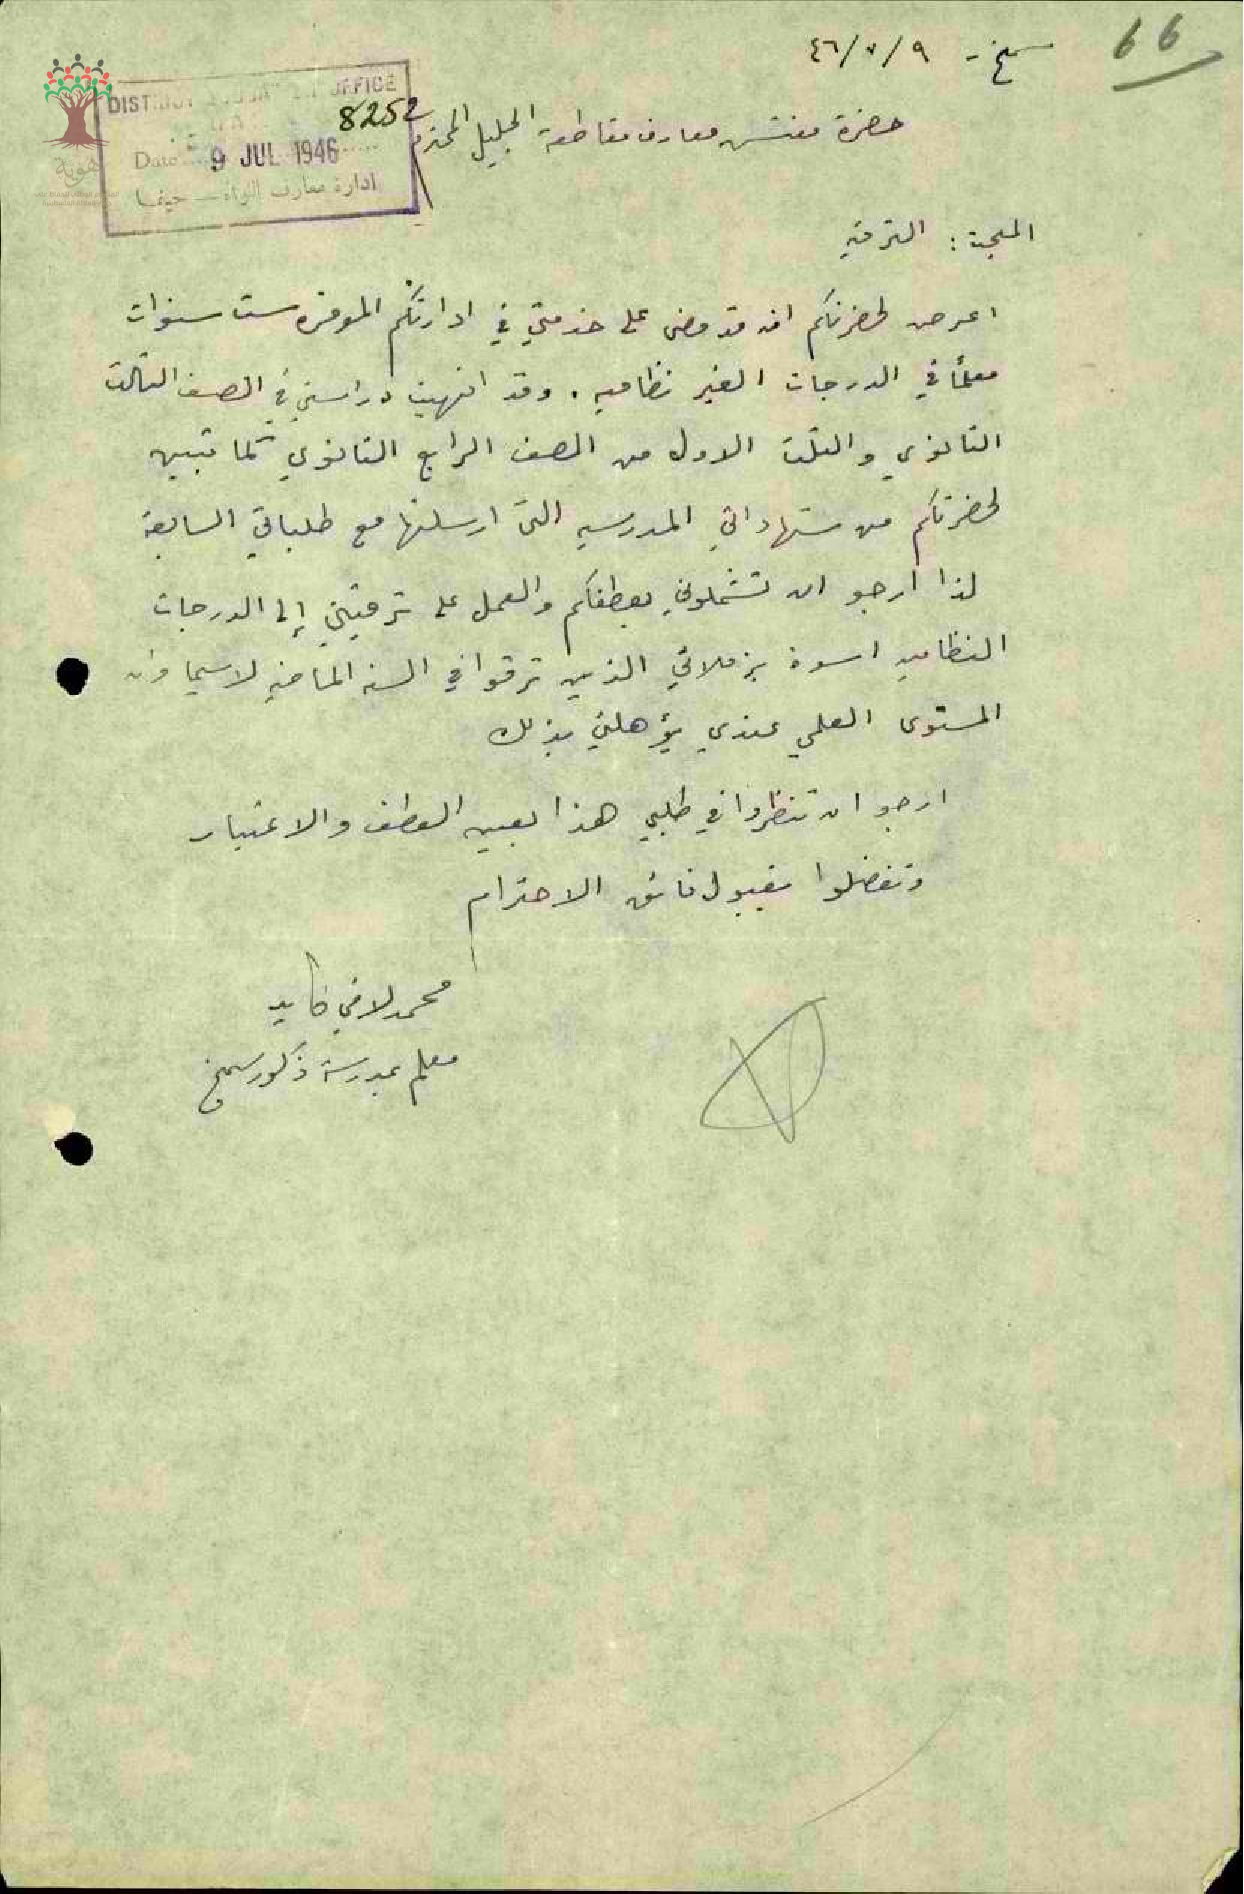 66
سمخ - ٩/٧/٤٦
DISTRICT EDUCATION OFFICE
8252
Date 9 JUL 1946
ادارة معارف اللواء — حيفا
هوية
حضرة مفتش معارف مقاطعة الجليل المحترم
المبحث : الترقيه
اعرض لحضرتكم انه قد مضى على خدمتي في ادارتكم الموقره ست سنوات
معلماً في الدرجات الغير نظاميه . وقد انهيت دراستي في الصف الثالث
الثانوي والثلث الاول من الصف الرابع الثانوي كما تبين
لحضرتكم من شهاداتي المدرسيه التي ارسلتها مع طلباتي السابقة
لذا ارجو ان تشملوني بعطفكم والعمل على ترقيتي إلى الدرجات
النظاميه اسوة بزملائي الذين ترقوا في السنه الماضيه لاسيما وان
المستوى العلمي عندي يؤهلني بذلك
ارجو ان تنظروا في طلبي هذا بعين العطف والاعتبار
وتفضلوا بقبول فائق الاحترام
محمد لافي كايد
معلم بمدرسة ذكور سمخ